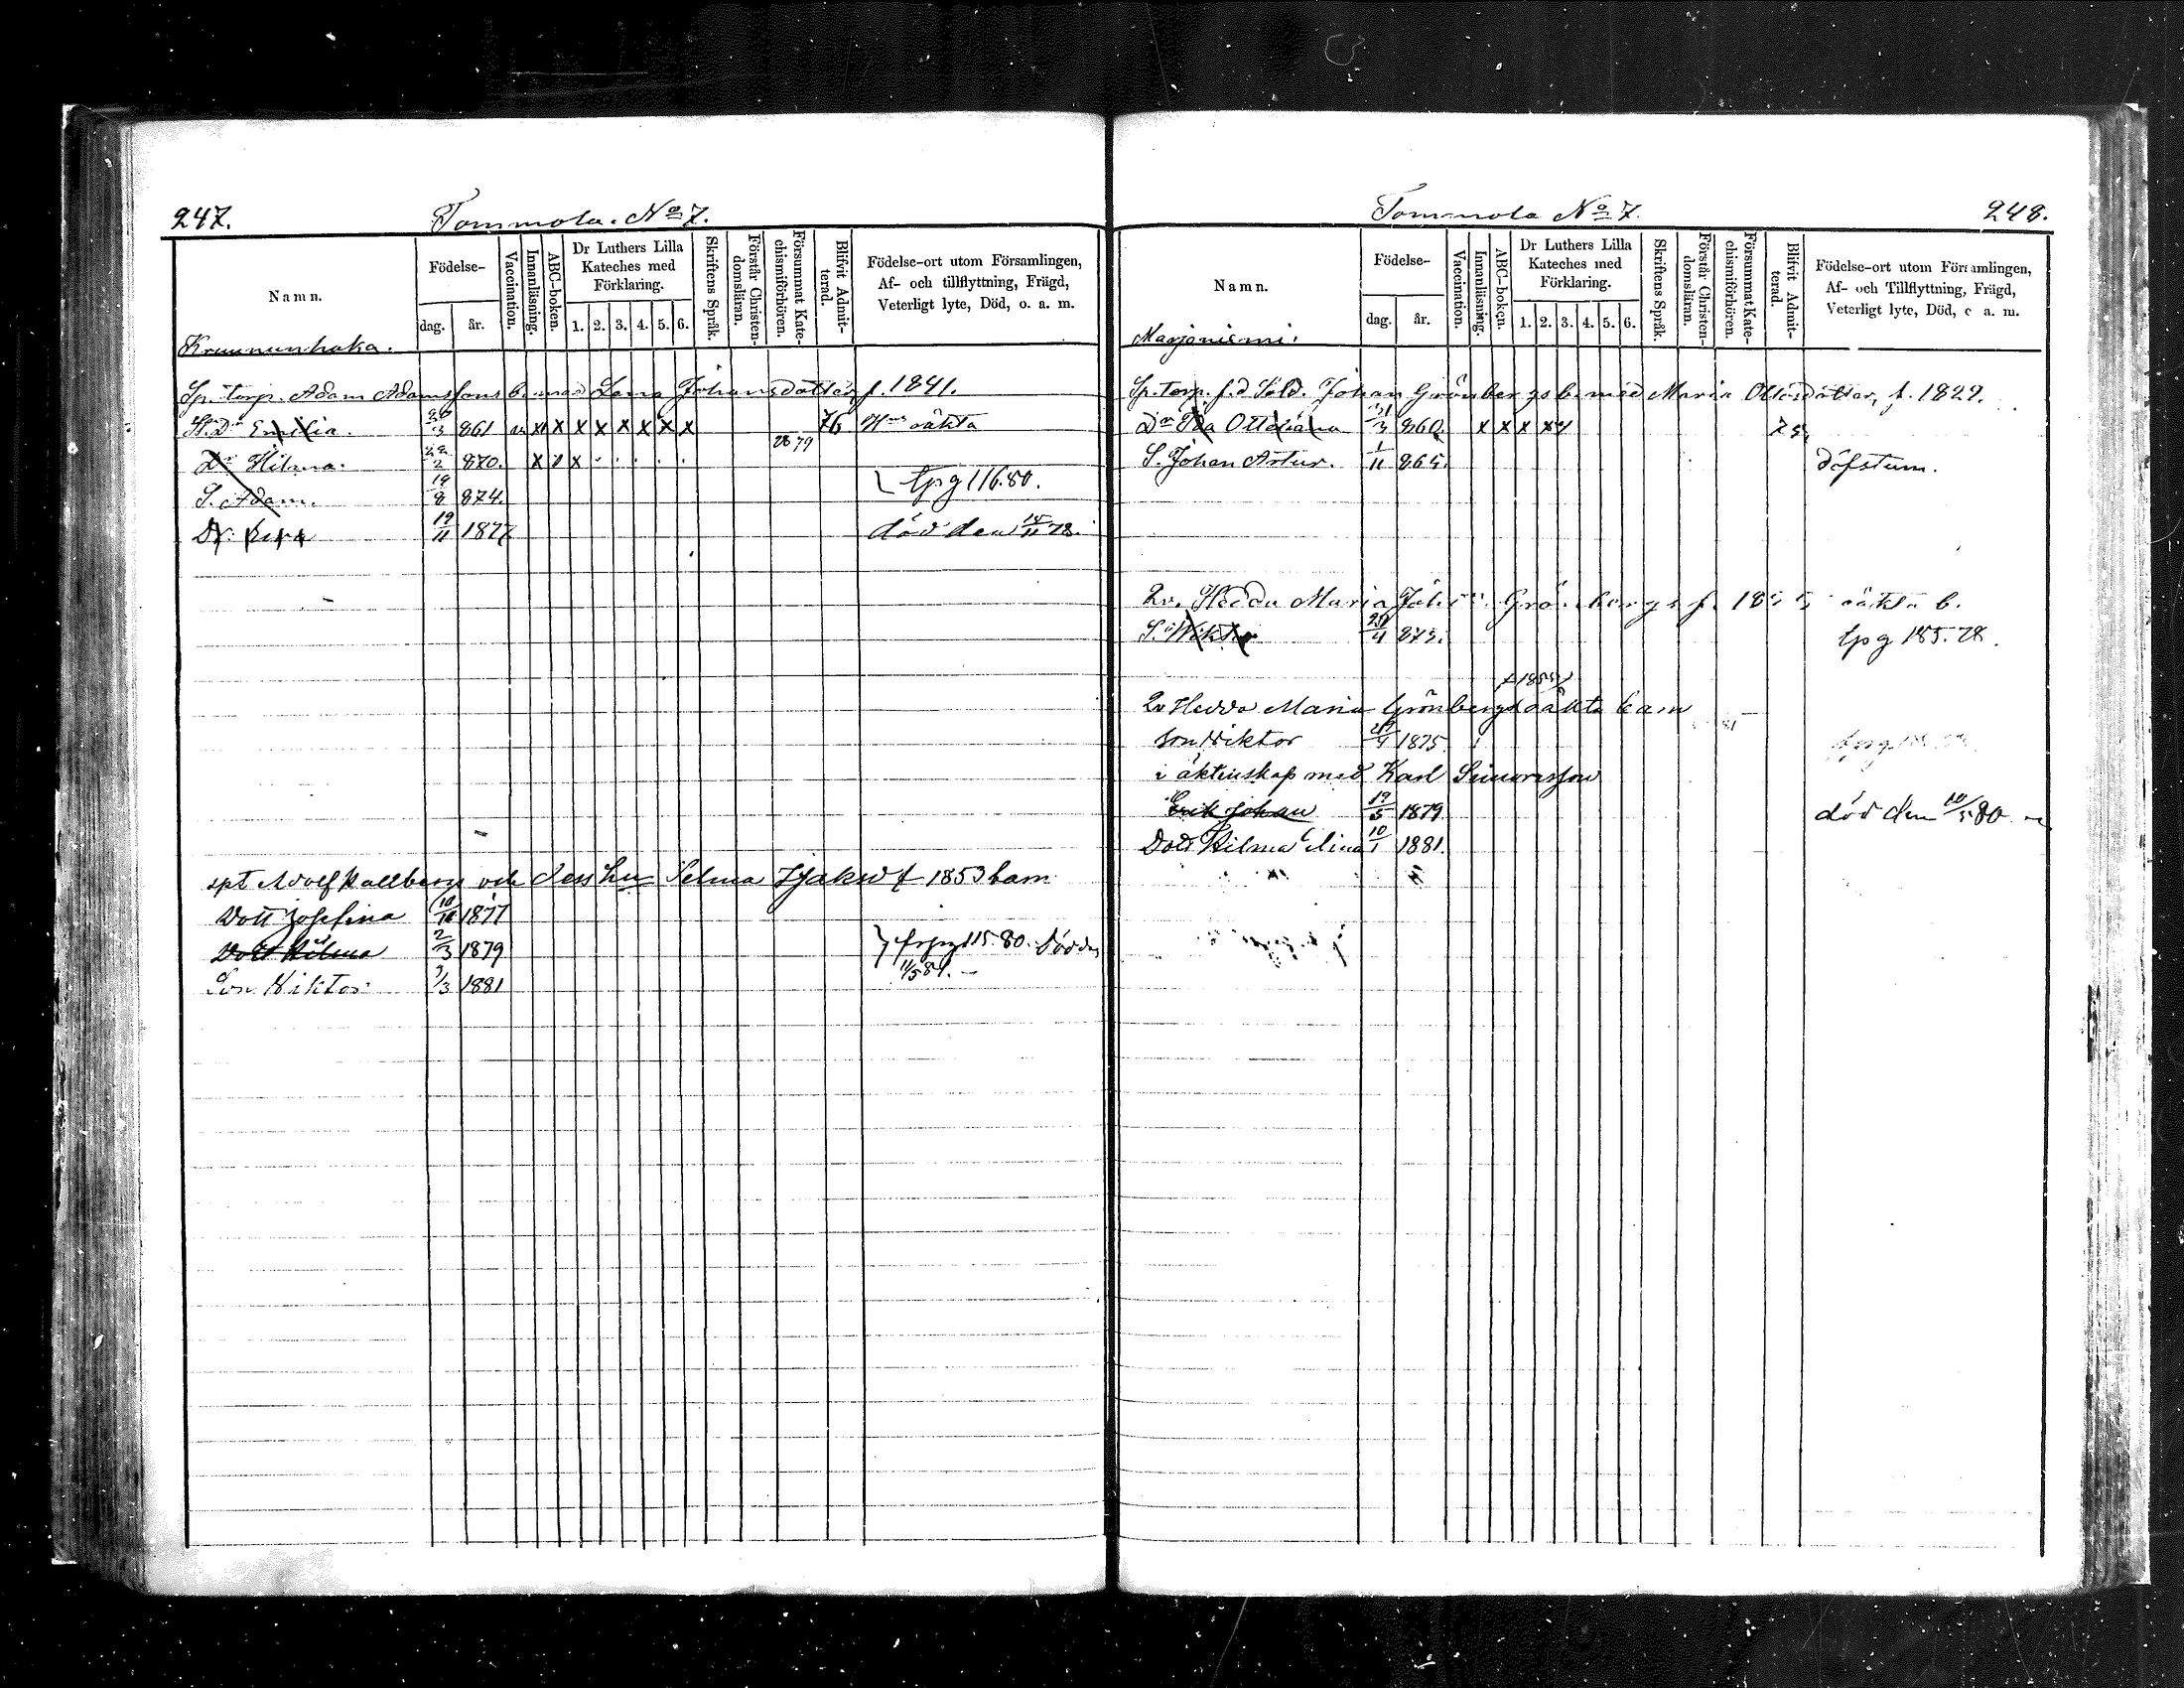 247.
Tommola. No 7.
Namn.
Födelse-
dag.
år.
Vaccination.
Innanläsning.
ABC-boken.
Dr Luthers Lilla Kateches med Förklaring.
1. 2. 3. 4. 5. 6.
Skriftens Språk.
Förstår Christen-domsläran.
Försummat Kate-chismiförhören.
Blifvit Admit-terad.
Födelse-ort utom Församlingen, Af- och tillflyttning, Frägd, Veterligt lyte, Död, o. a. m.
Kruununhaka.
Sp. torp. Adam Adamssons b. med Lena Johansdotter, f. 1841.
Emilia. 861 x x x x x x x 76 oäkta
Dr Hilma. 22/2 870. x x x 28 79
S. Adam. 19/8 874. } tpg 116.80.
Dr. 19/11 1877 död den 78.
spt Adolf Hallberg och dess hu Selma f 1853 barn
Dott Josefina 1877
Dott Hilma 2/3 1879 } frpg 115.80. död den
Son Viktor 1881 11/5 81.
248.
Tommola No 7.
Namn.
Födelse-
dag.
år.
Vaccination.
Innanläsning.
ABC-boken.
Dr Luthers Lilla Kateches med Förklaring.
1. 2. 3. 4. 5. 6.
Skriftens Språk.
Förstår Christen-domsläran.
Försummat Kate-chismiförhören.
Blifvit Admit-terad.
Födelse-ort utom Församlingen, Af- och Tillflyttning, Frägd, Veterligt lyte, Död, o a. m.
Marjoniemi.
Sp. torp. f. d Sold. Johan Grönbergs b. med Maria Ottosdotter, f. 1829.
Dr Ida 860. x x x x 75
S. Johan Artur. 1/11 865. döfstum.
Qv. Hedda Maria Grönbergs f. oäkta b.
S. Wiktor 875. tpg 185.78.
f 1855
Qv Hedda Maria Grönbergs oäkta barn
son Viktor 1875
i äktenskap med Karl Simonsson
Erik Johan 19/5 1879 död den 10/5 80
Dott Hilma Elina 10/1 1881.